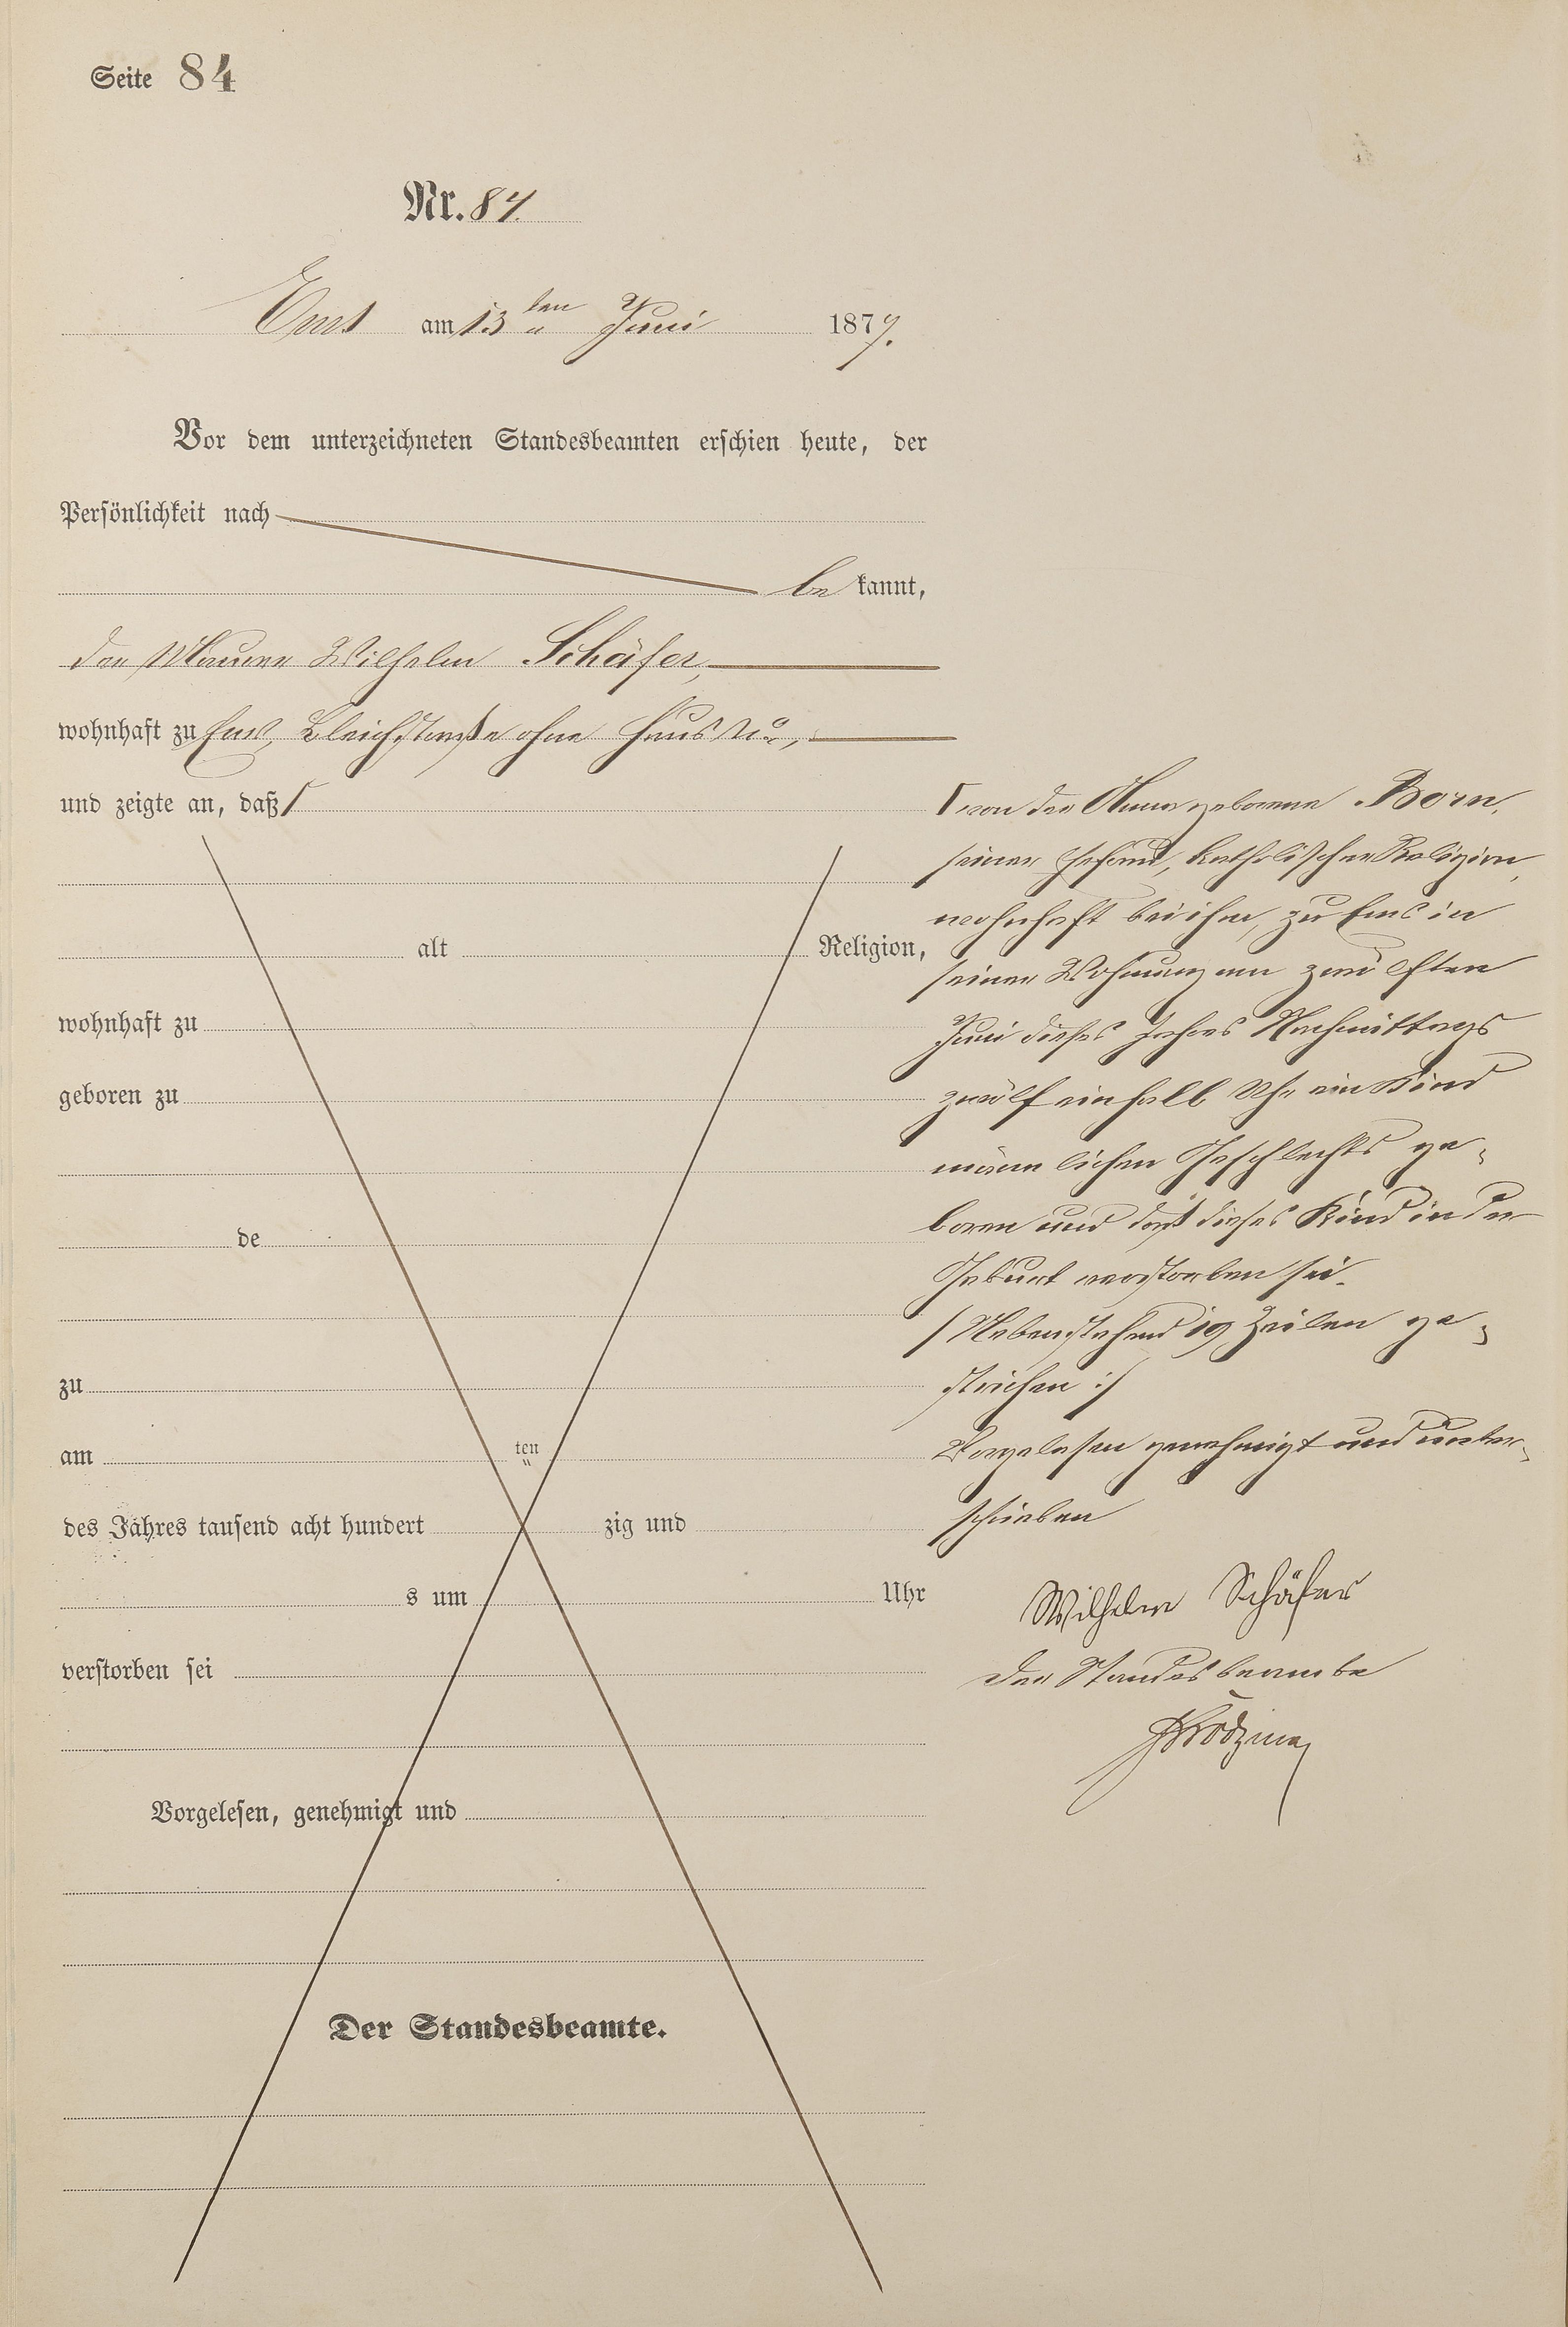 Seite 84
Nr. 84.
Ems am 13ten Juni 1877.
Vor dem unterzeichneten Standesbeamten erschien heute, der
Persönlichkeit nach
be kannt,
der Maurer Wilhelm Schäfer,
wohnhaft zu Ems, Bleichstraße ohne Haus No,
und zeigte an, daß ſ
alt Religion,
wohnhaft zu
geboren zu
de
zu
am ten
des Jahres tausend acht hundert zig und
s um Uhr
verstorben sei
Vorgelesen, genehmigt und
Der Standesbeamte.
ſ von der Anna geborene Born,
seiner Ehefrau, katholischer Religion,
wohnhaft bei ihm, zu Ems in
seiner Wohnung am zwölften
Juni dieses Jahres Nachmittags
zwölf einhalb Uhr ein Kind
männlichen Geschlechts ge-
boren und daß dieses Kind in der
Geburt verstorben sei.
/ Nebenstehend 19 Zeilen ge-
strichen :/
Vorgelesen genehmigt und unter-
schrieben
Wilhelm Schäfer
Der Standesbeamte